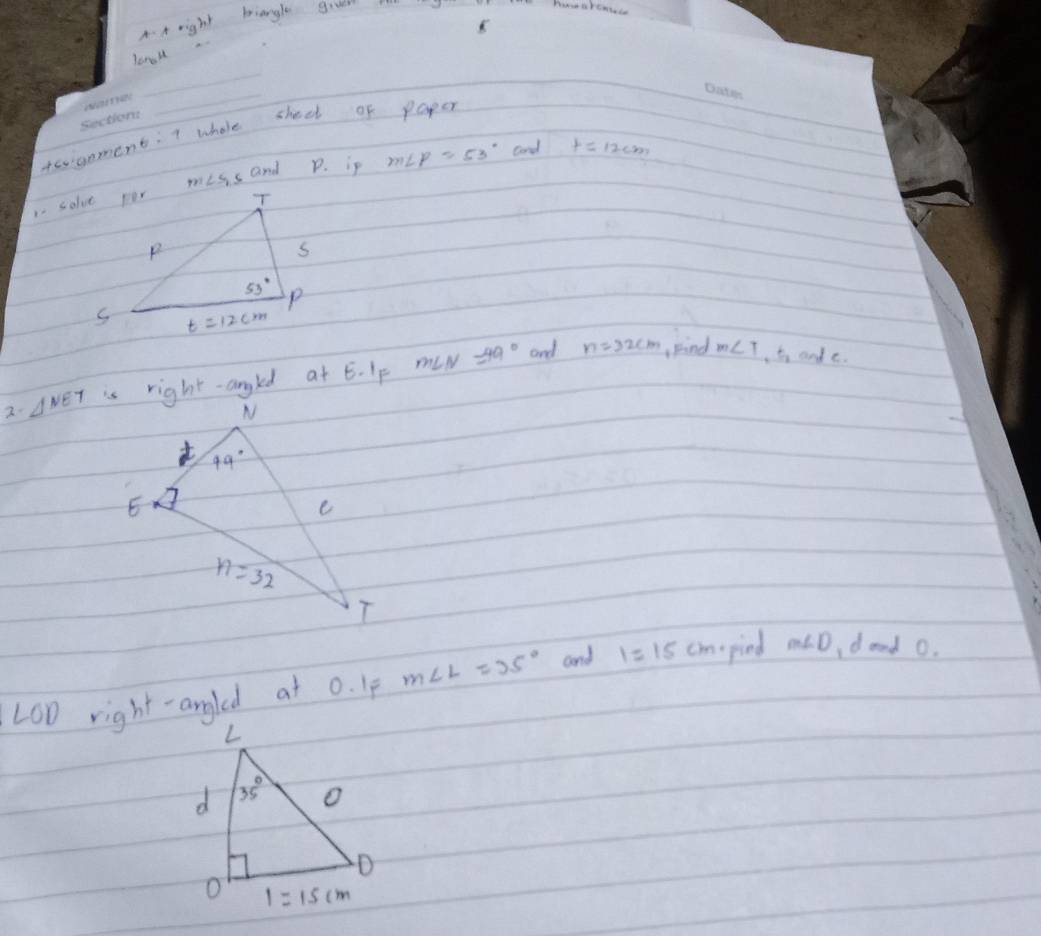 A. A right triangle given
Name:
Section:
Date:
Assignment: 1 whole sheet of paper
1. Solve for m∠S, s and p. if m∠P = 53° and t = 12cm
T
P
S
53°
S
P
t = 12cm
2. △NET is right-angled at E. If m∠N = 49° and n=32cm, find m∠T, t, and e.
N
t
49°
E
e
n=32
T
LOD right-angled at O. If m∠L = 35° and l = 15 cm. find m∠D, d and O.
L
d
35°
O
O
D
l = 15 cm